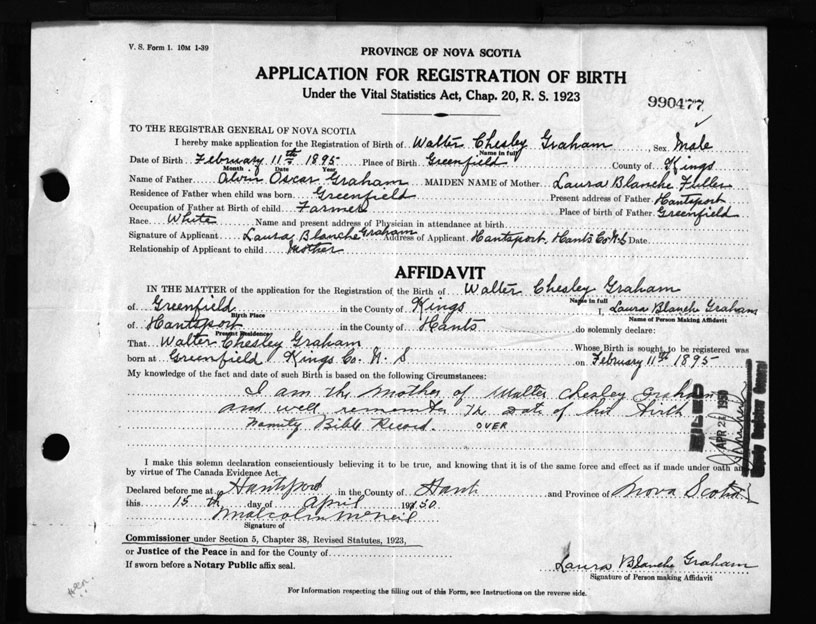 V. S. Form 1. 10M 1-39
PROVINCE OF NOVA SCOTIA
APPLICATION FOR REGISTRATION OF BIRTH
Under the Vital Statistics Act, Chap. 20, R. S. 1923
990477
TO THE REGISTRAR GENERAL OF NOVA SCOTIA
I hereby make application for the Registration of Birth of Walter Chesley Graham Sex Male
Name in full
Date of Birth February 11th 1895 Place of Birth Greenfield County of Kings
Month of Date Year
Name of Father Alvin Oscar Graham MAIDEN NAME of Mother Laura Blanche
Residence of Father when child was born Greenfield Present address of Father Hantsport
Occupation of Father at Birth of child Farmer Place of birth of Father Greenfield
Race White Name and present address of Physician in attendance at birth
Signature of Applicant Laura Blanche Graham Address of Applicant Hantsport, Hants Co N.S Date
Relationship of Applicant to child Mother
AFFIDAVIT
IN THE MATTER of the application for the Registration of the Birth of Walter Chesley Graham
Name in full
of Greenfield in the County of Kings I, Laura Blanche Graham
Birth Place Name of Person Making Affidavit
of Hantsport in the County of Hants do solemnly declare:
Present Residence
That Walter Chesley Graham Whose Birth is sought to be registered was
born at Greenfield Kings Co. N. S on February 11th 1895
My knowledge of the fact and date of such Birth is based on the following Circumstances:
I am the Mother of Walter Chesley Graham
and well remember the Date of his Birth
Bible Record. OVER
FILED
APR 21 1950
I make this solemn declaration conscientiously believing it to be true, and knowing that it is of the same force and effect as if made under oath and
by virtue of The Canada Evidence Act.
Declared before me at Hantsport in the County of Hants and Province of Nova Scotia
this 15th day of April 1950
Malcolm McNeil
Signature of
Commissioner under Section 5, Chapter 38, Revised Statutes, 1923,
or Justice of the Peace in and for the County of
If sworn before a Notary Public affix seal.
Laura Blanche Graham
Signature of Person making Affidavit
For Information respecting the filling out of this Form, see Instructions on the reverse side.